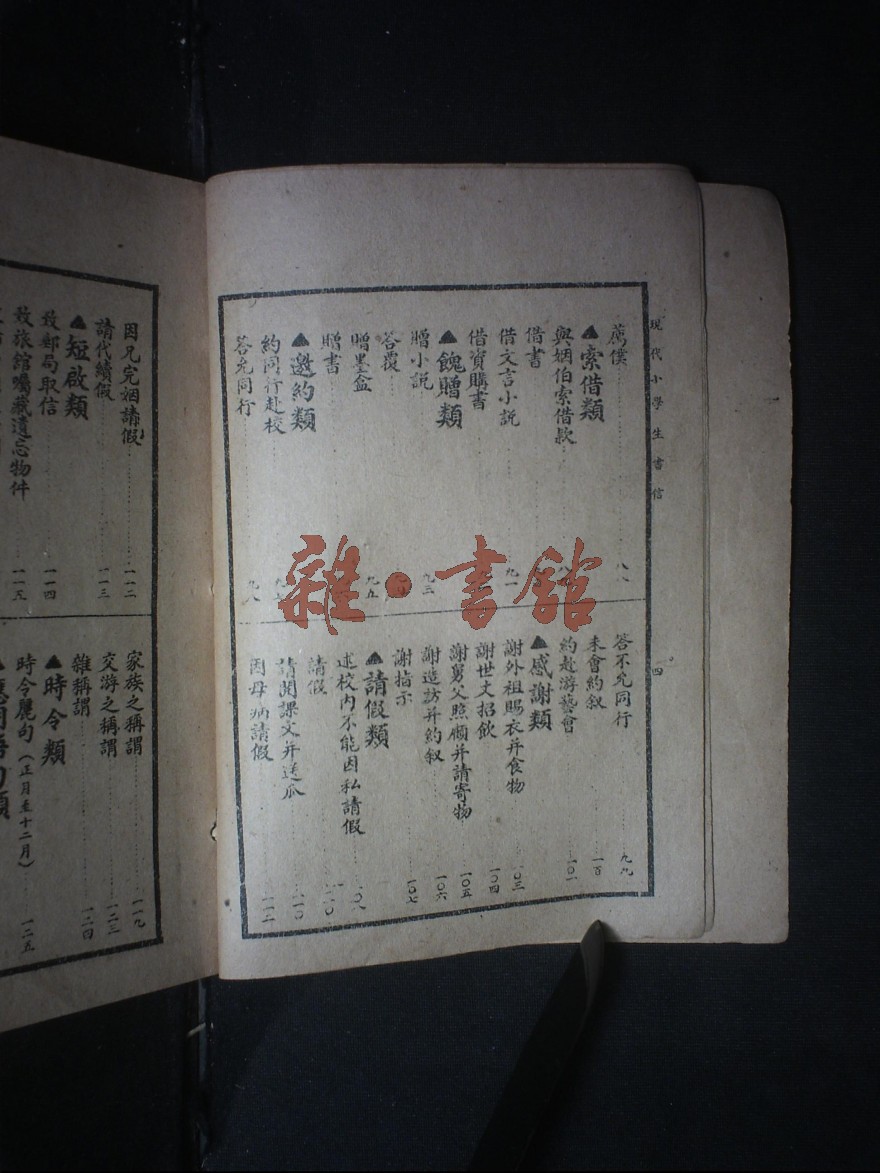 現代小學生書信
四
薦僕 八八
▲索借類
與姻伯索借款
借書
借文言小說 九一
借資購書
▲餽贈類
贈小說 九三
答覆 九五
贈墨盒
贈書
▲邀約類
約同行赴校
答允同行 九八
答不允同行 九九
未會約叙 一百
約赴游藝會 一〇一
▲感謝類
謝外祖賜衣并食物 一〇三
謝世丈招飲 一〇四
謝舅父照顧并請寄物 一〇五
謝造訪并約叙 一〇六
謝指示 一〇七
▲請假類
述校內不能因私請假 一〇八
請假 一一〇
請閱課文并送瓜 一一〇
因母病請假 一一二
因兄完姻請假 一一二
請代續假 一一三
▲短啟類
致郵局取信 一一四
致旅館囑藏遺忘物件 一一五
家族之稱謂 一一九
交游之稱謂 一二三
雜稱謂 一二四
▲時令類
時令麗句（正月至十二月） 一二五
雜·書館